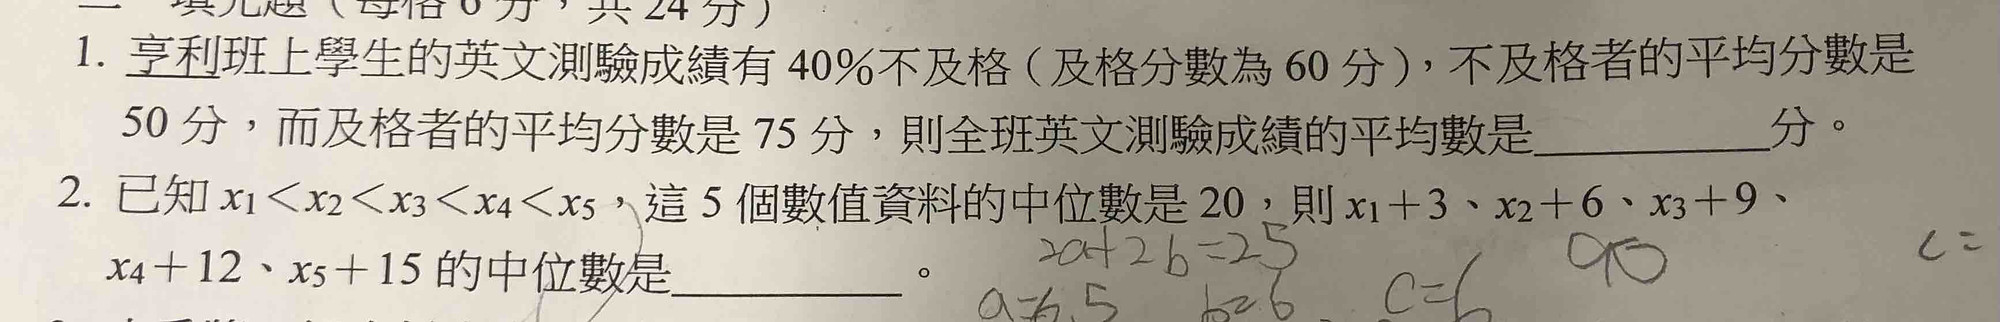 填充題（每格6分，共24分）
1. 亨利班上學生的英文測驗成績有40%不及格（及格分數為60分），不及格者的平均分數是
50分，而及格者的平均分數是75分，則全班英文測驗成績的平均數是__________分。
2. 已知x₁＜x₂＜x₃＜x₄＜x₅，這5個數值資料的中位數是20，則x₁＋3、x₂＋6、x₃＋9、
x₄＋12、x₅＋15的中位數是__________。
2a+2b=25
c=
b=6
c=6